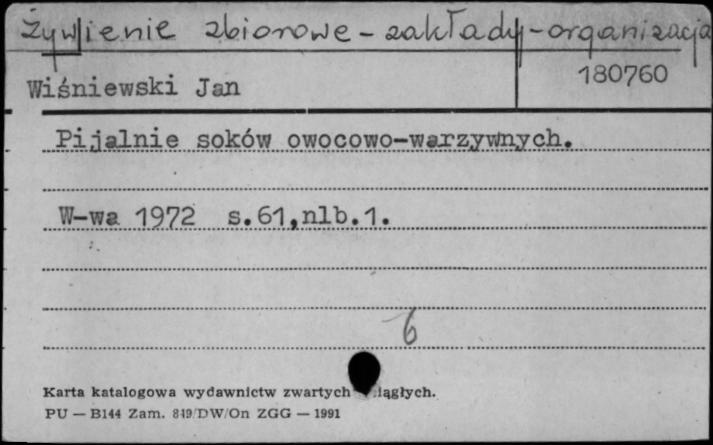 Żywienie zbiorowe - zakłady - organizacja
Wiśniewski Jan
180760
Pijalnie soków owocowo-warzywnych.
W-wa 1972 s.61,nlb.1.
6
Karta katalogowa wydawnictw zwartych iągłych.
PU — B144 Zam. 849/DW/On ZGG — 1991